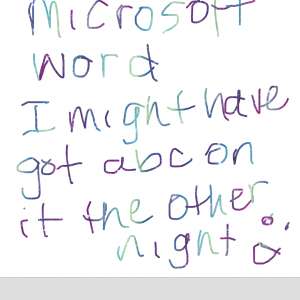 Microsoft
Word
I might have
got abc on
it the other
night